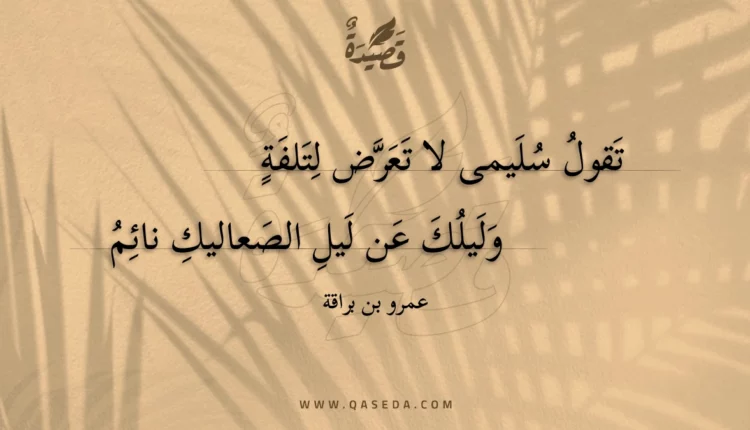 قَصِيْدَةٌ
تَقولُ سُلَيمى لا تَعَرَّض لِتَلفَةٍ
وَلَيلُكَ عَن لَيلِ الصَعاليكِ نائِمُ
عمرو بن براقة
WWW.QASEDA.COM